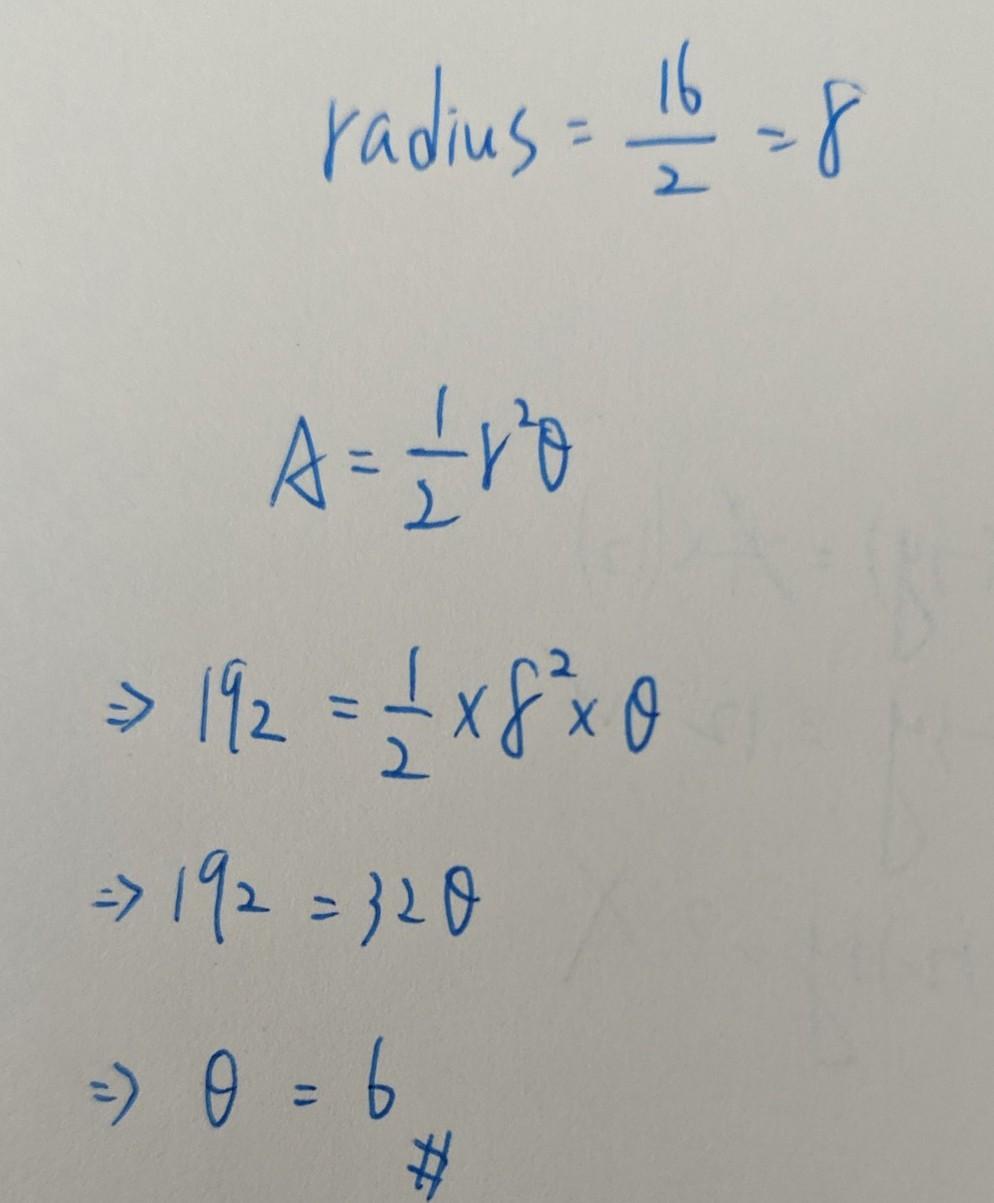 radius = 16/2 = 8
A = 1/2 r²θ
⇒ 192 = 1/2 × 8² × θ
⇒ 192 = 32θ
⇒ θ = 6 #